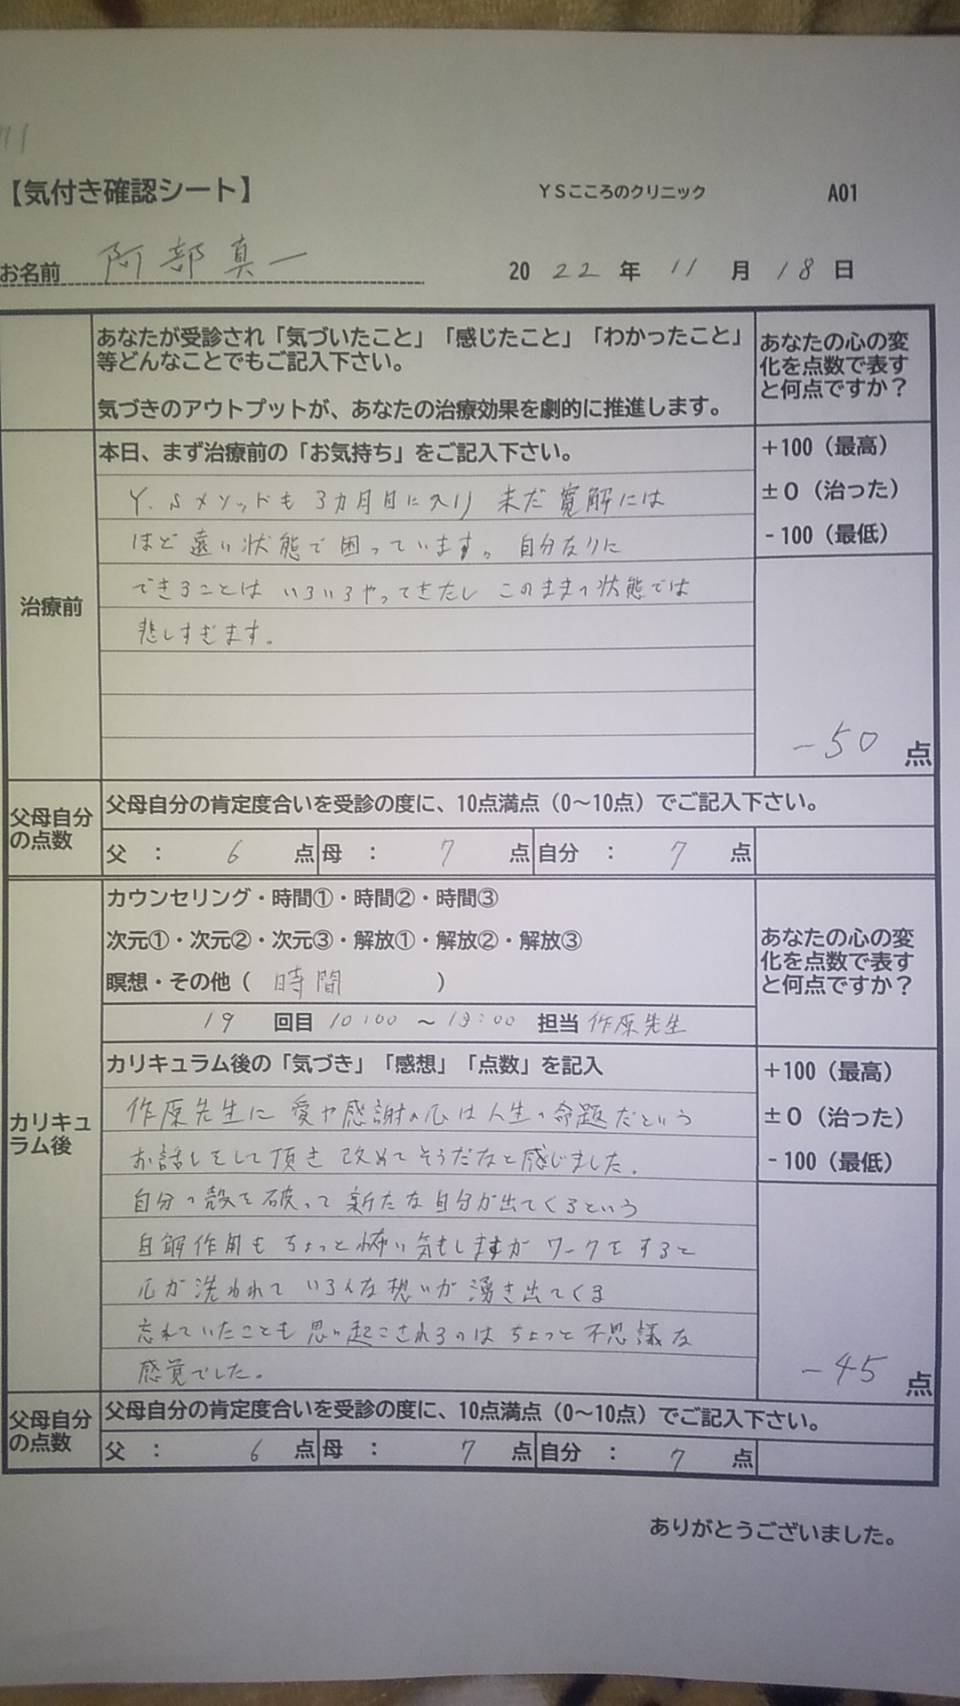 【気付き確認シート】 YSこころのクリニック A01
お名前 阿部真一 2022年11月18日
あなたが受診され「気づいたこと」「感じたこと」「わかったこと」
等どんなことでもご記入下さい。
気づきのアウトプットが、あなたの治療効果を劇的に推進します。
あなたの心の変
化を点数で表す
と何点ですか？
治療前
本日、まず治療前の「お気持ち」をご記入下さい。
Y.Sメソッドも3カ月目に入り 未だ寛解には
ほど遠い状態で困っています。自分なりに
できることは いろいろやってきたし このままの状態では
悲しすぎます。
+100（最高）
±0（治った）
-100（最低）
-50 点
父母自分
の点数
父母自分の肯定度合いを受診の度に、10点満点（0～10点）でご記入下さい。
父 ： 6 点 母 ： 7 点 自分 ： 7 点
カリキュ
ラム後
カウンセリング・時間①・時間②・時間③
次元①・次元②・次元③・解放①・解放②・解放③
瞑想・その他（ 時間 ）
19 回目 10:00 ～ 担当 作原先生
あなたの心の変
化を点数で表す
と何点ですか？
カリキュラム後の「気づき」「感想」「点数」を記入
作原先生に 愛や感謝の心は人生の命題だという
お話しをして頂き 改めてそうだなと感じました。
自分の殻を破って新たな自分が出てくるという
自解作用もちょっと怖い気もしますが ワークをすると
心が洗われて いろんな想いが湧き出てくる
忘れていたことも思い起こされるのは ちょっと不思議な
感覚でした。
+100（最高）
±0（治った）
-100（最低）
-45 点
父母自分
の点数
父母自分の肯定度合いを受診の度に、10点満点（0～10点）でご記入下さい。
父 ： 6 点 母 ： 7 点 自分 ： 7 点
ありがとうございました。